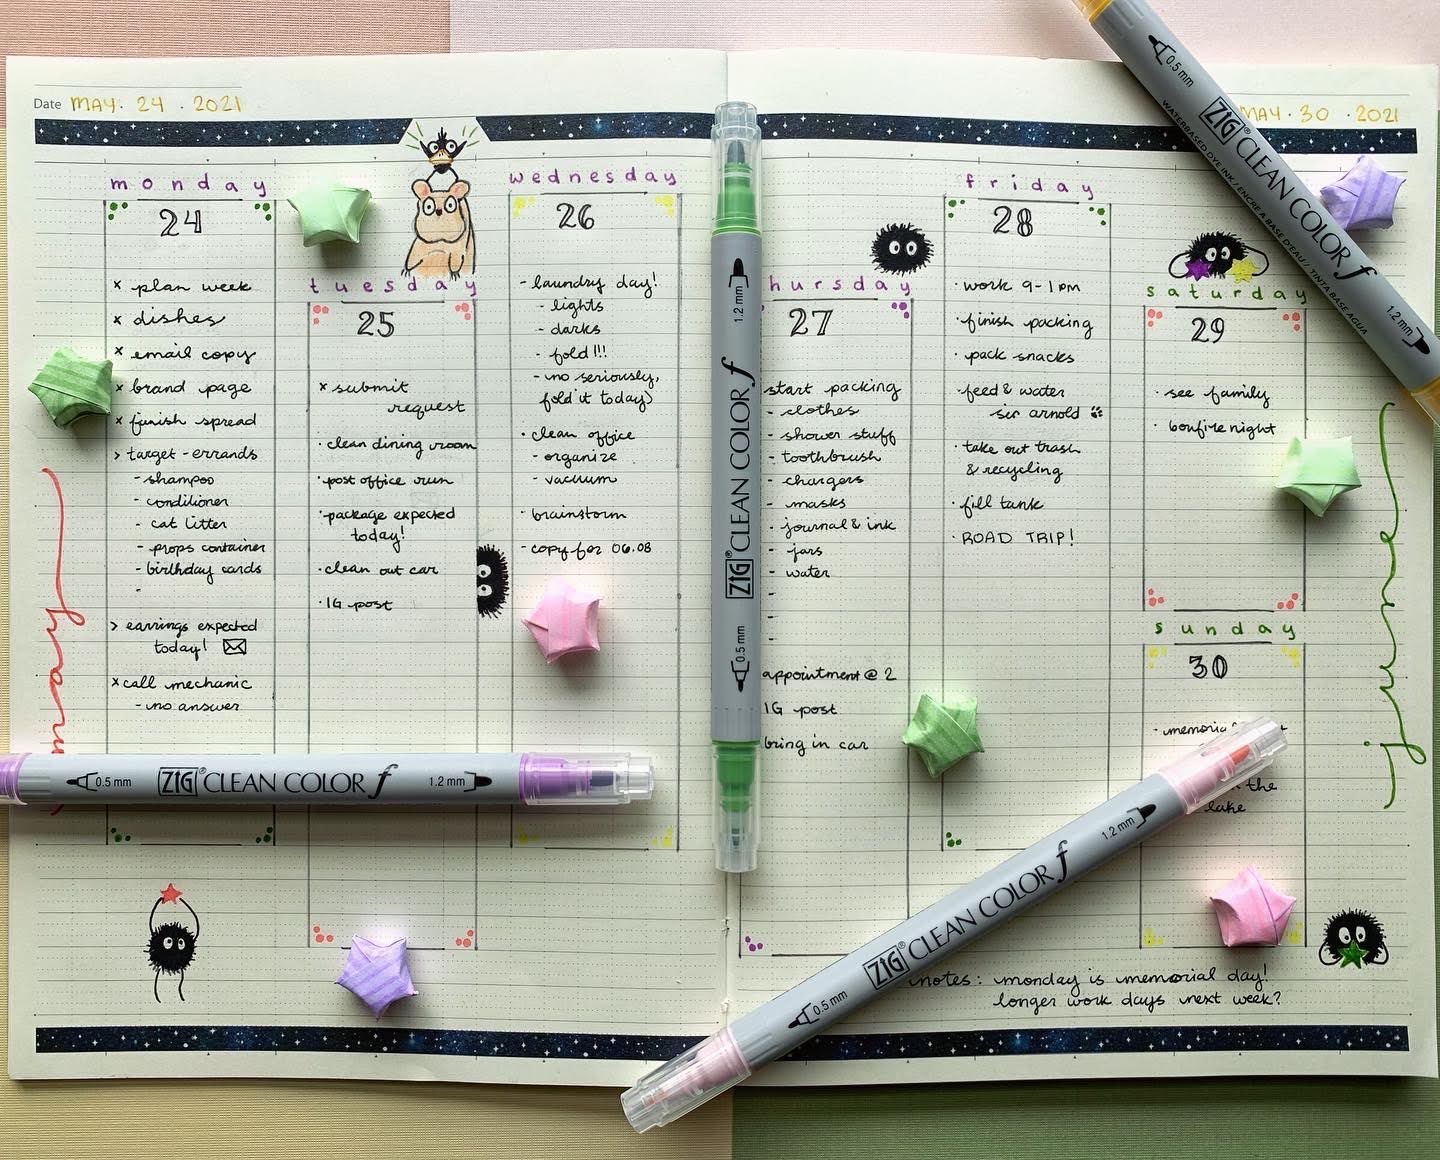 Date MAY. 24 . 2021
MAY . 30 . 2021
monday
24
x plan week
x dishes
x email copy
x brand page
x finish spread
> target - errands
- shampoo
- conditioner
- cat litter
- props container
- birthday cards
-
> earrings expected
today!
x call mechanic
- no answer
tuesday
25
x submit
request
· clean dining room
· post office run
· package expected
today!
· clean out car
· IG post
wednesday
26
- laundry day!
- lights
- darks
- fold!!!
- no seriously,
fold it today)
· clean office
- organize
- vacuum
· brainstorm
- copy for 06.08
hursday
27
start packing
- clothes
- shower stuff
- toothbrush
- chargers
- masks
- journal & ink
- jars
- water
-
-
-
appointment @ 2
IG post
bring in car
friday
28
· work 9-1pm
· finish packing
· pack snacks
· feed & water
sir arnold
· take out trash
& recycling
· fill tank
· ROAD TRIP!
saturday
29
· see family
· bonfire night
sunday
30
the
lake
notes: monday is memorial day!
longer work days next week?
may
june
ZIG® CLEAN COLOR f
0.5 mm
1.2 mm
WATERBASED DYE INK / ENCRE A BASE D'EAU / TINTA BASE AGUA
1.2 mm
ZIG® CLEAN COLOR f
0.5 mm
0.5 mm ZIG® CLEAN COLOR f 1.2 mm
0.5 mm ZIG® CLEAN COLOR f 1.2 mm